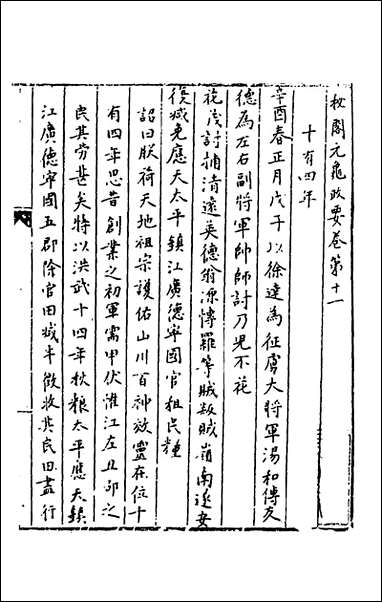 秘閣元龜政要卷第十一
十有四年
辛酉春正月戊子以徐達為征虜大將軍湯和傅友
德為左右副將軍帥師討乃兒不花
花茂討捕清遠英德翁源博羅等賊叛賊嶺南遂安
復减免應天太平鎮江廣德寧國官租民糧
詔曰朕荷天地祖宗護佑山川百神效靈在位十
有四年思昔創業之初軍需甲仗惟江左五郡之
民其勞甚矣特以洪武十四年秋粮太平應天鎮
江廣德寧國五郡除官田减半徵收其民田盡行